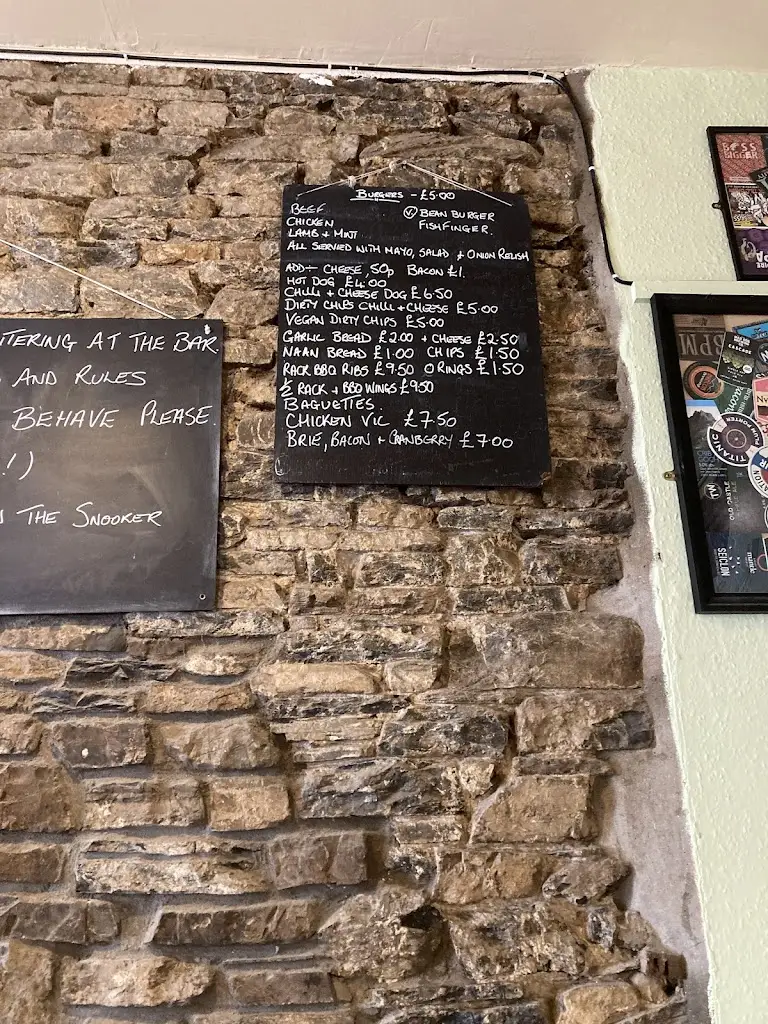 BURGERS - £5.00
BEEF
Ⓥ BEAN BURGER
CHICKEN
FISHFINGER.
LAMB + MINT
ALL SERVED WITH MAYO, SALAD, + ONION RELISH
ADD÷ CHEESE, 50p BACON £1.
HOT DOG £4.00
CHILLI + CHEESE DOG £6.50
DIRTY CHIPS CHILLI + CHEESE £5.00
VEGAN DIRTY CHIPS £5.00
GARLIC BREAD £2.00 + CHEESE £2.50
NAAN BREAD £1.00 CHIPS £1.50
RACK BBQ RIBS £9.50 O RINGS £1.50
½ RACK + BBQ WINGS £9.50
BAGUETTES.
CHICKEN VIC £7.50
BRIE, BACON + CRANBERRY £7.00
TERING AT THE BAR.
AND RULES
BEHAVE PLEASE.
!)
THE SNOOKER
BOSS
BIGGER
CASCADE
TITANIC
PLUM PORTER
OLD CASTLE
SEICLON